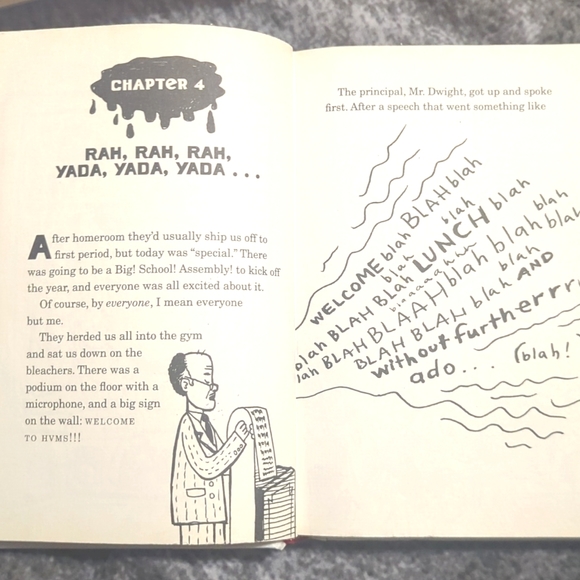 CHAPTER 4
RAH, RAH, RAH,
YADA, YADA, YADA . . .
After homeroom they'd usually ship us off to
first period, but today was “special.” There
was going to be a Big! School! Assembly! to kick off
the year, and everyone was all excited about it.
Of course, by everyone, I mean everyone
but me.
They herded us all into the gym
and sat us down on the
bleachers. There was a
podium on the floor with a
microphone, and a big sign
on the wall: WELCOME
TO HVMS!!!
The principal, Mr. Dwight, got up and spoke
first. After a speech that went something like
WELCOME blah BLAH blah
blah LUNCH blah
blah
blah BLAH Blah
blah BLAH BLAAH blah blah blah
BLAH BLAH blah AND
blah
without furtherrrr
ado.... (blah!